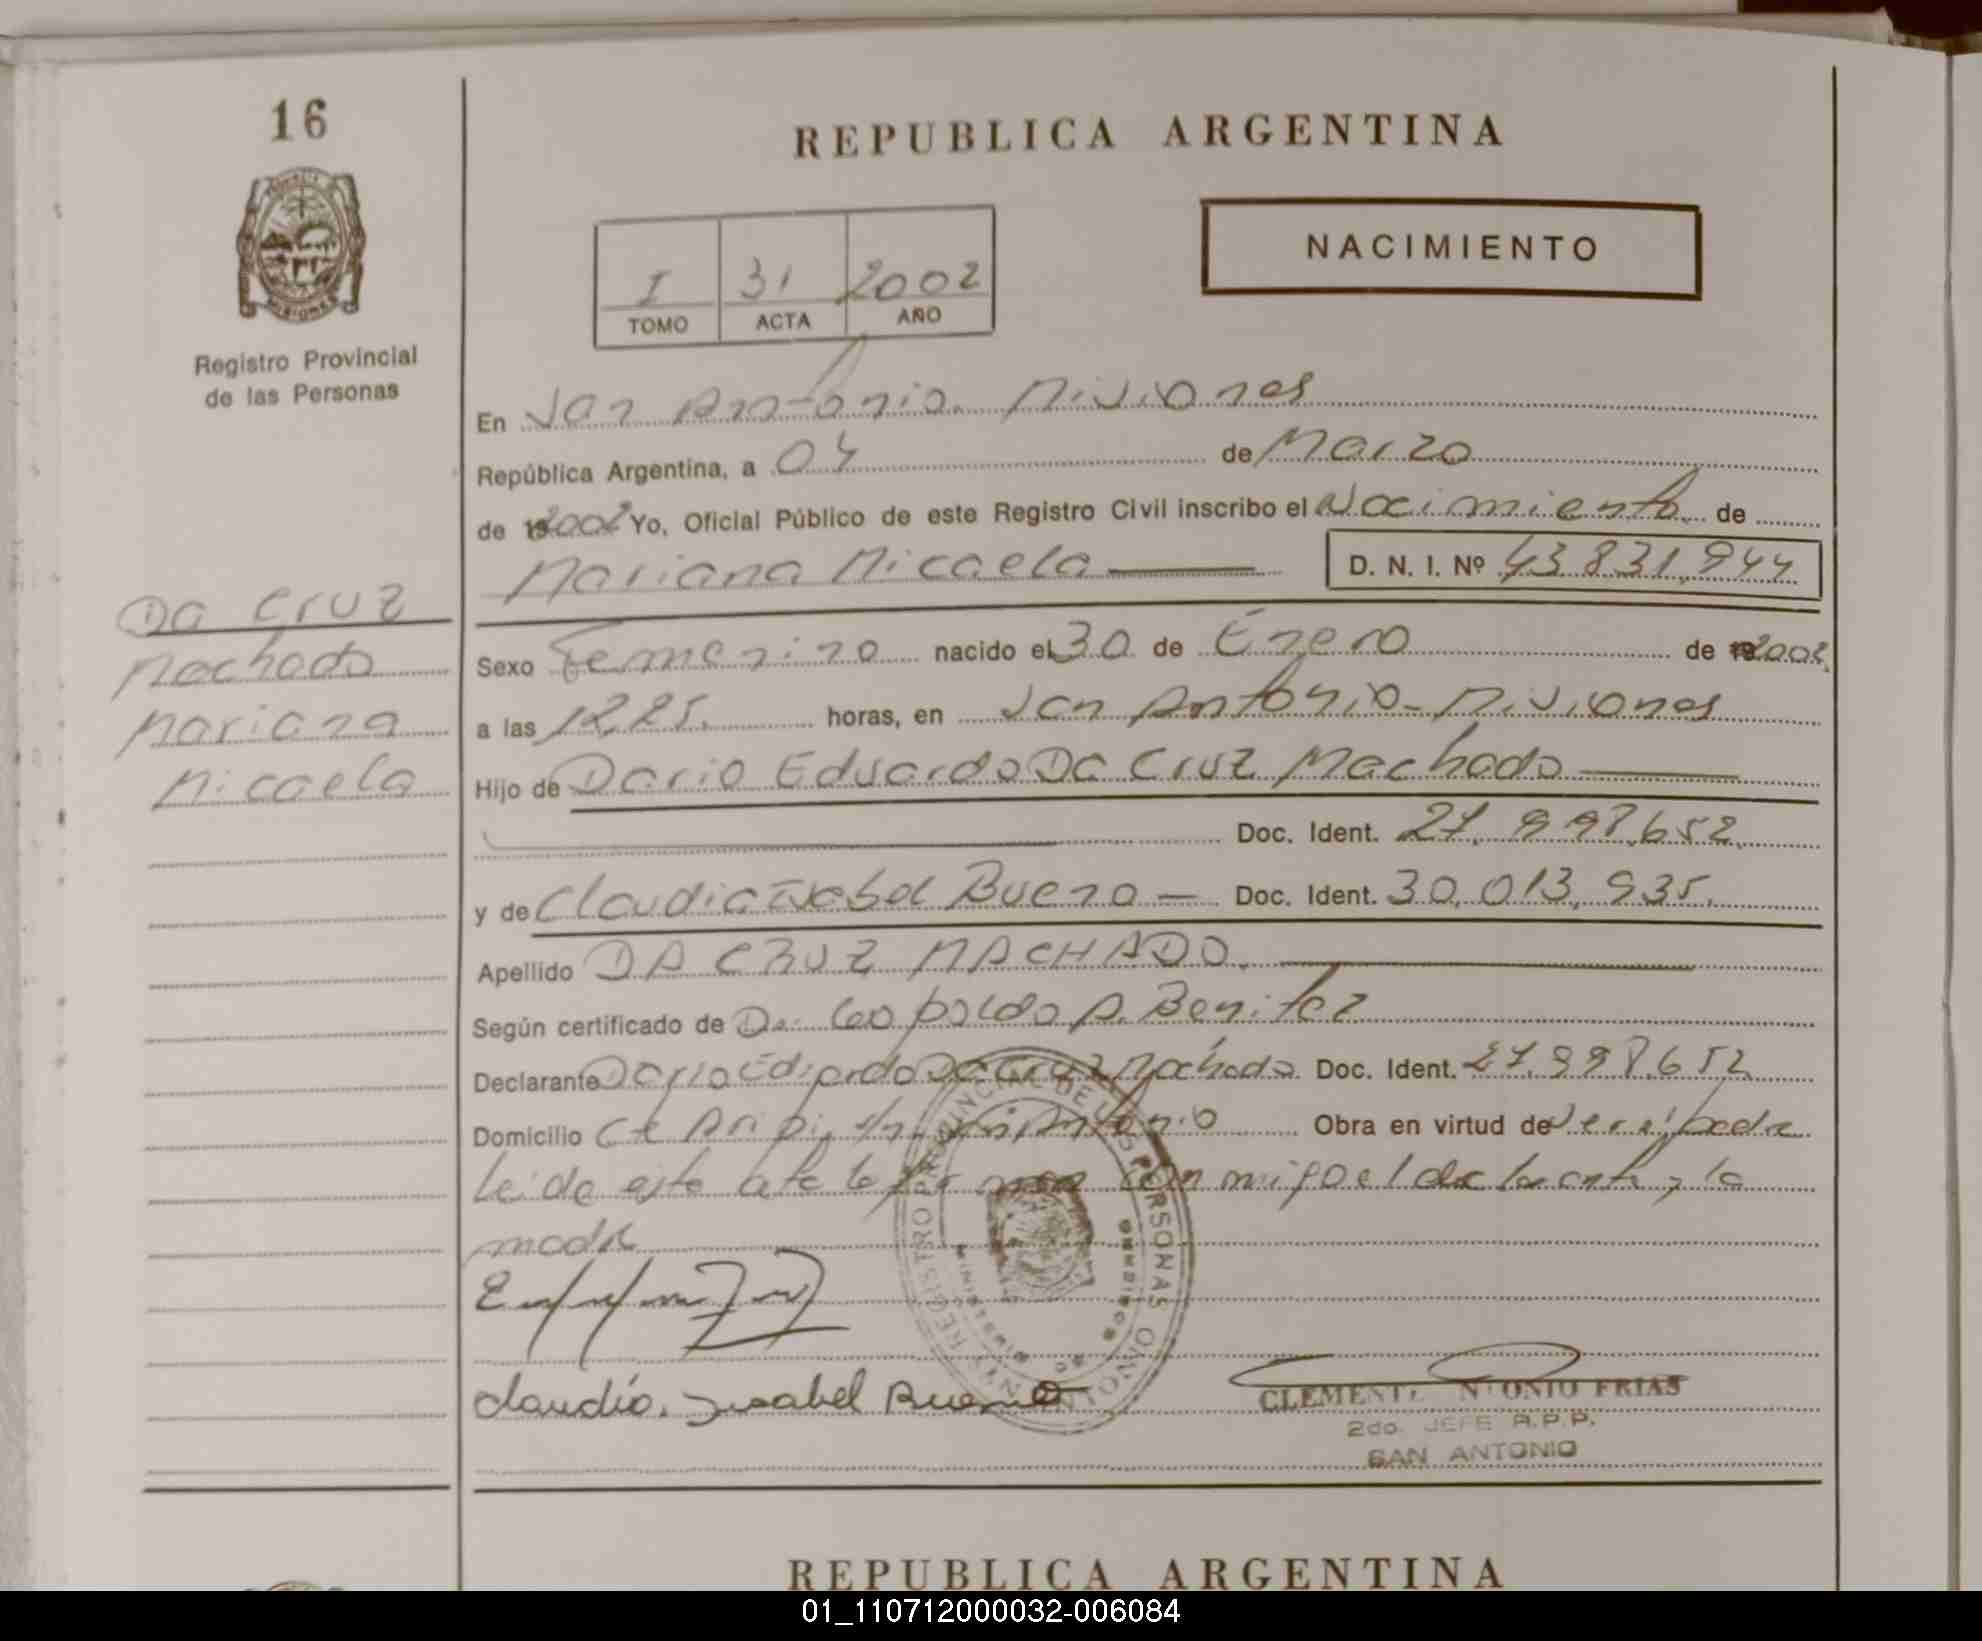 16
REPUBLICA ARGENTINA
NACIMIENTO
I 31 2002
TOMO ACTA AÑO
Registro Provincial
de las Personas
En San Antonio. Misiones
República Argentina, a 04 de Marzo
de 2002 Yo, Oficial Público de este Registro Civil inscribo el Nacimiento de
Mariana Micaela D. N. I. Nº 43 831.944
Da Cruz
Machado
Mariana
Micaela
Sexo Femenino nacido el 30 de Enero de 2002
a las 12 25. horas, en San Antonio - Misiones
Hijo de Dario Eduardo Da Cruz Machado
Doc. Ident. 27.998.652
y de Claudia Isabel Bueno — Doc. Ident. 30.013.935.
Apellido DA CRUZ MACHADO.
Según certificado de Dr. Leopoldo A. Benitez
Declarante Dario Eduardo Da Cruz Machado Doc. Ident. 27.998.652
Domicilio San Antonio Obra en virtud de
Leida este conmigo el declarante y la
madre
Claudia. Isabel Bueno
CLEMENTE ANTONIO FRIAS
2do. JEFE R.P.P.
SAN ANTONIO
REPUBLICA ARGENTINA
01_110712000032-006084